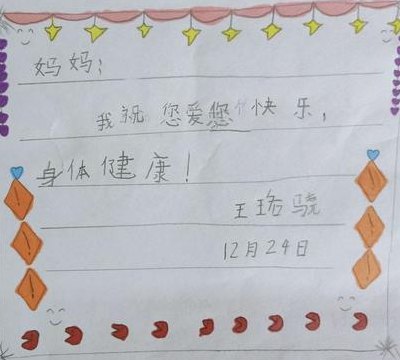 妈妈：
我祝您爱您快乐，
身体健康！
王珞骁
12月24日